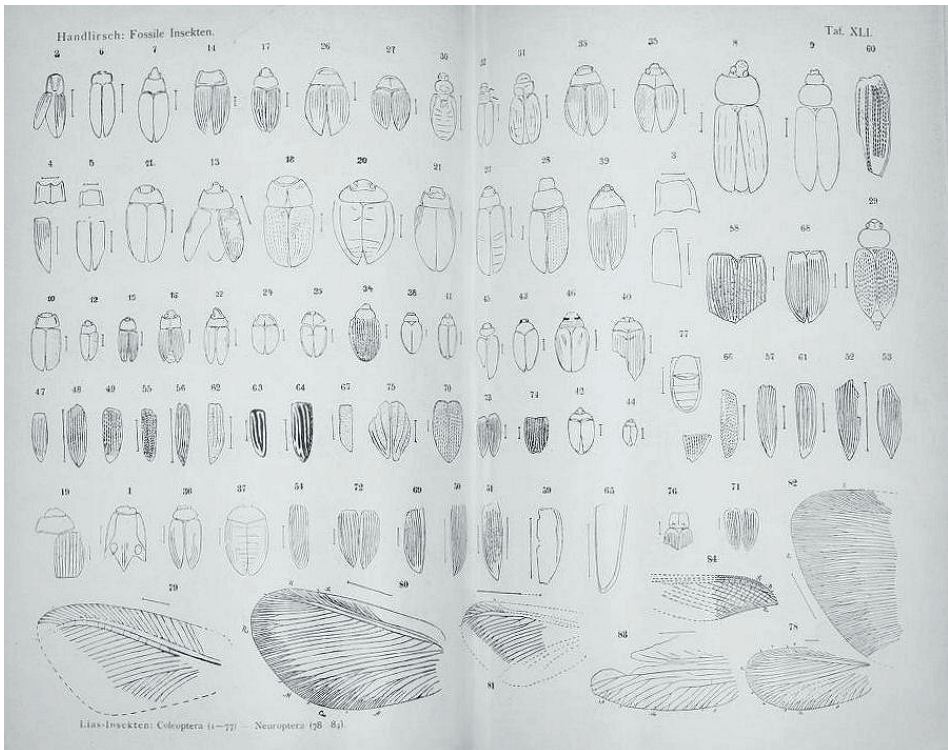 Handlirsch: Fossile Insekten.
Taf. XLI.
2 6 7 14 17 26 27 30 32 31 33 35 8 9 60
4 5 11 13 18 20 21 28 39 3 29
58 68
10 12 15 22 24 25 34 38 41 45 43 46 40
77
47 48 49 55 56 62 63 64 67 75 70 73 74 42 44 66 57 61 52 53
19 1 36 37 54 72 69 50 51 59 65 76 71 82
79 80 84
83 78
81
Lias-Insekten: Coleoptera (1—77) — Neuroptera (78—84).